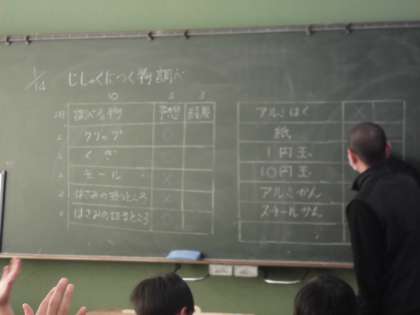 1/14 じしゃくにつく物調べ
10 2 3
調べる物 予想 結果
クリップ ○
くぎ ○
モール ×
はさみの持つところ ×
はさみの切るところ ○
アルミはく ×
紙
1円玉
10円玉
アルミかん
スチールかん